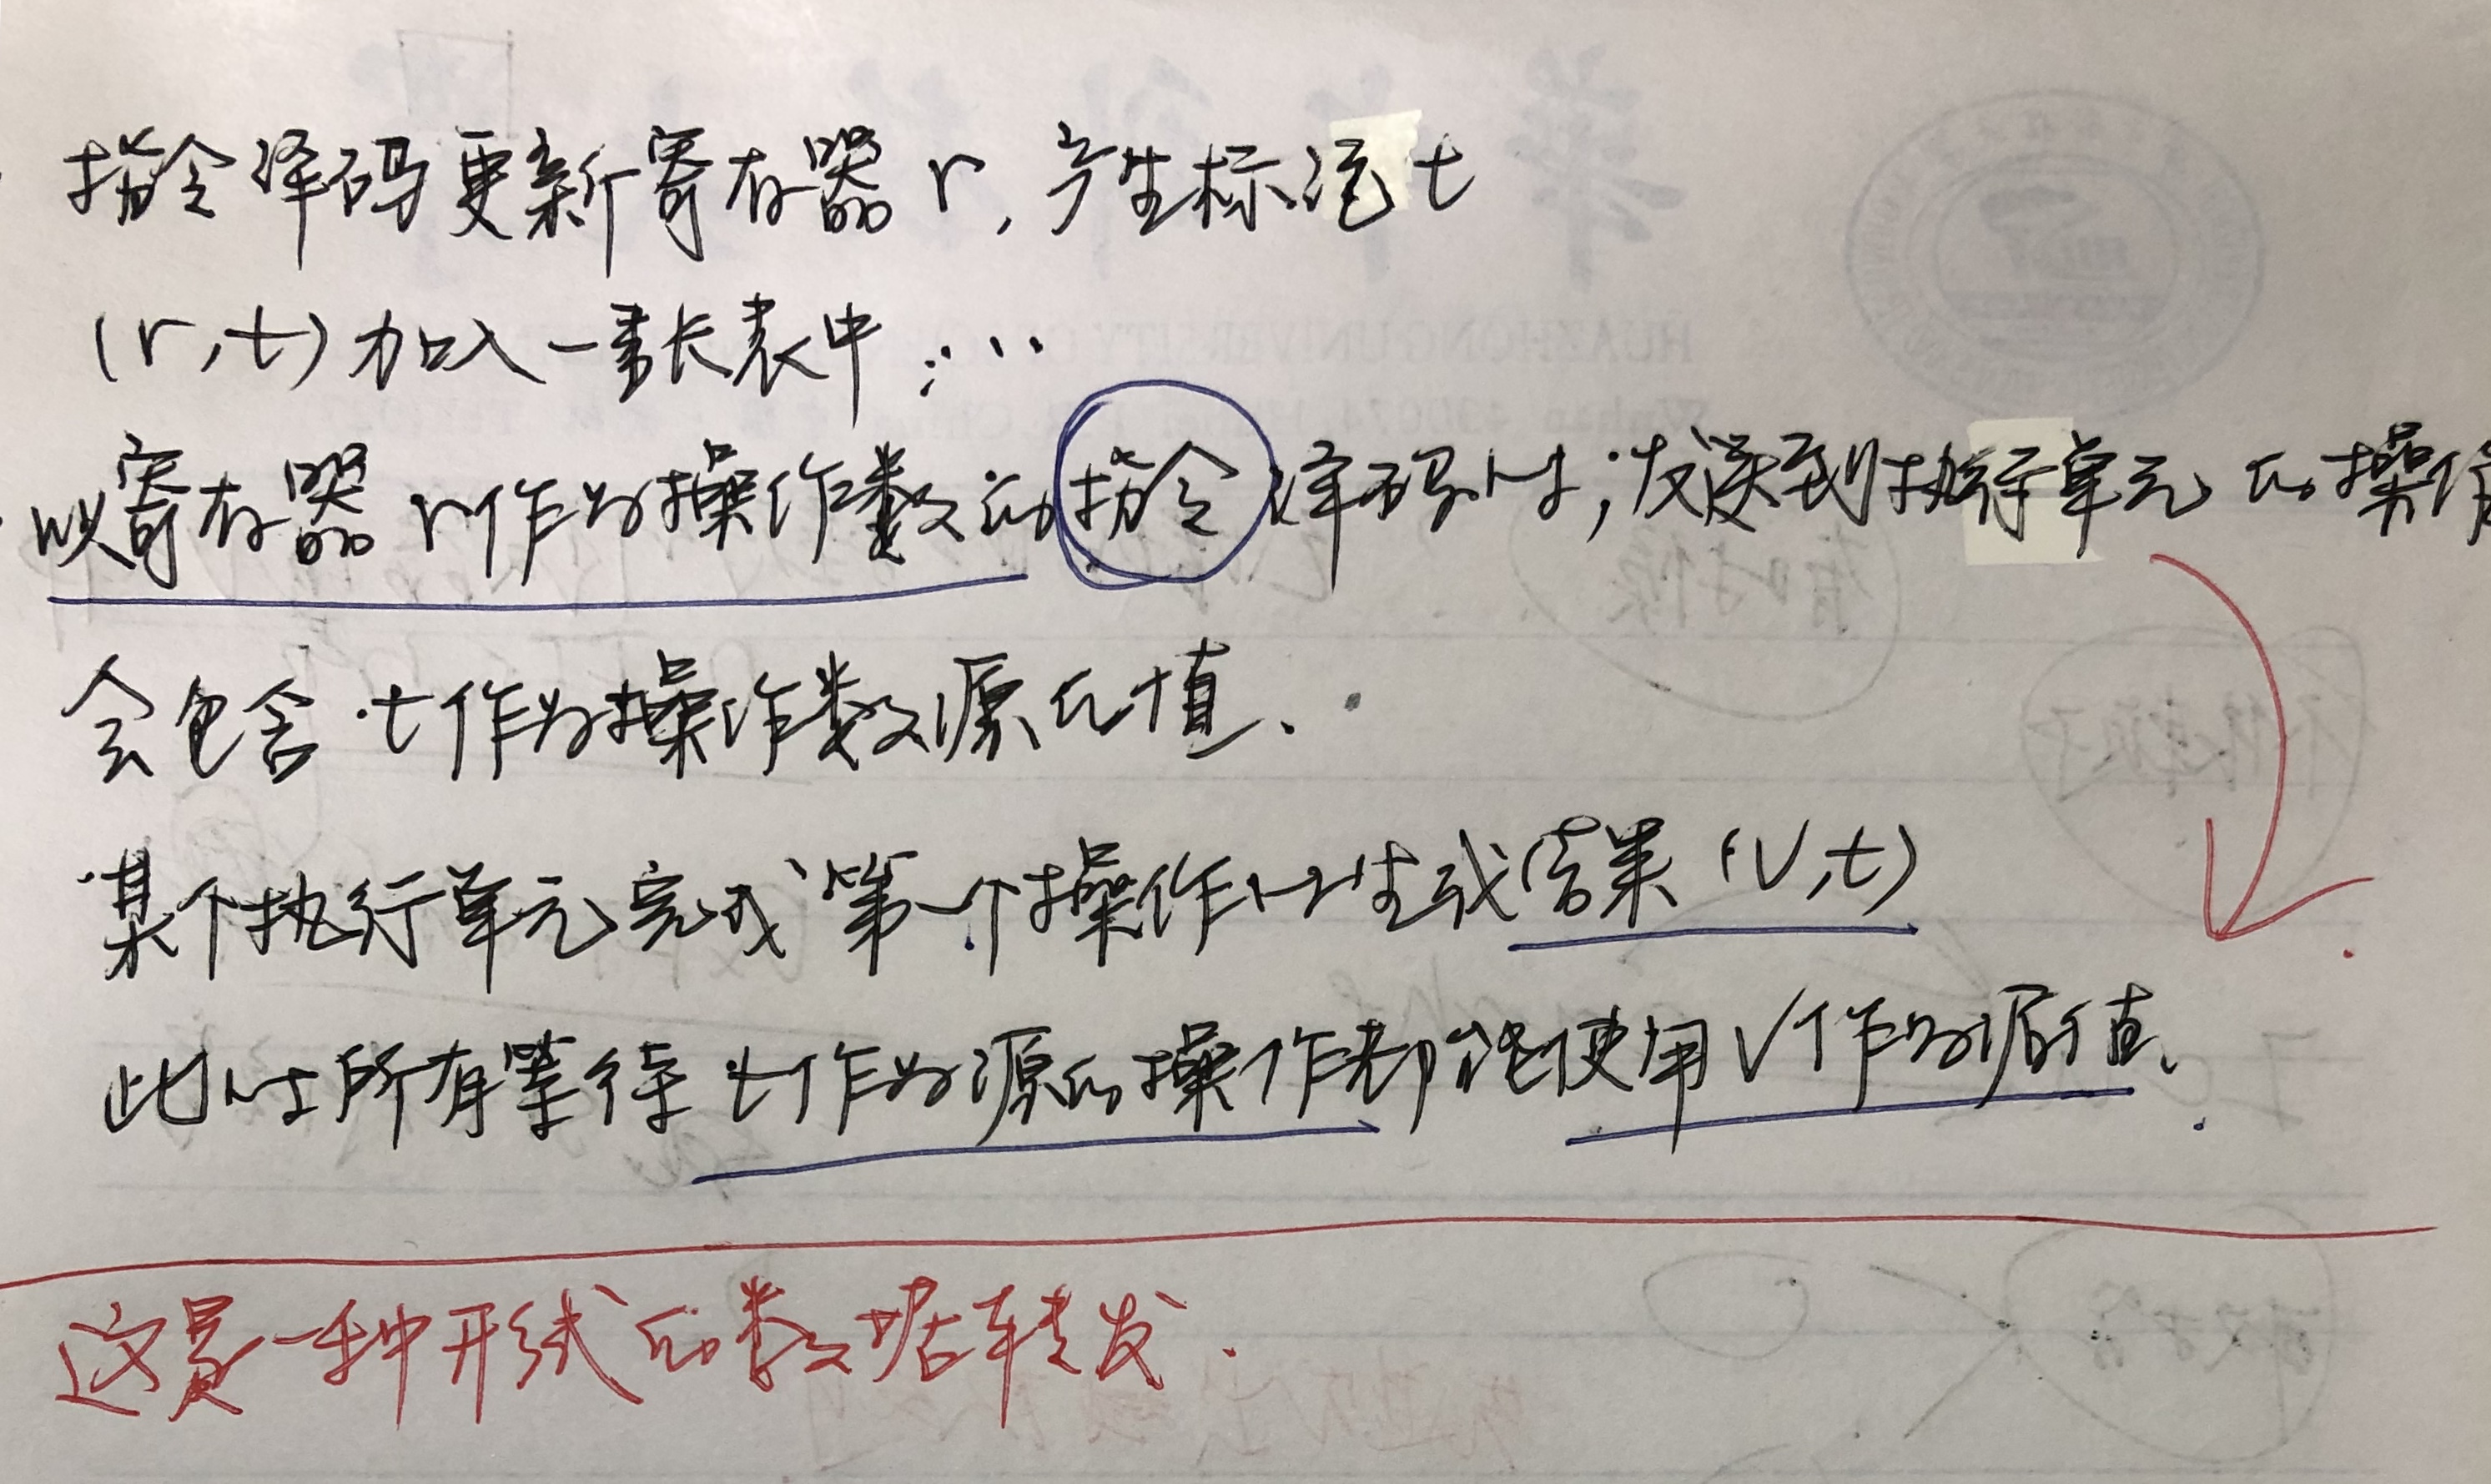 指令译码更新寄存器r,产生标记t
(r,t)加入一张表中;...
以寄存器r作为操作数的指令译码时;发送到执行单元的操作
会包含t作为操作数源的值.
某个执行单元完成第一个操作时生成结果(V,t)
此时所有等待t作为源的操作都能使用V作为源值.
这是一种形式的数据转发.